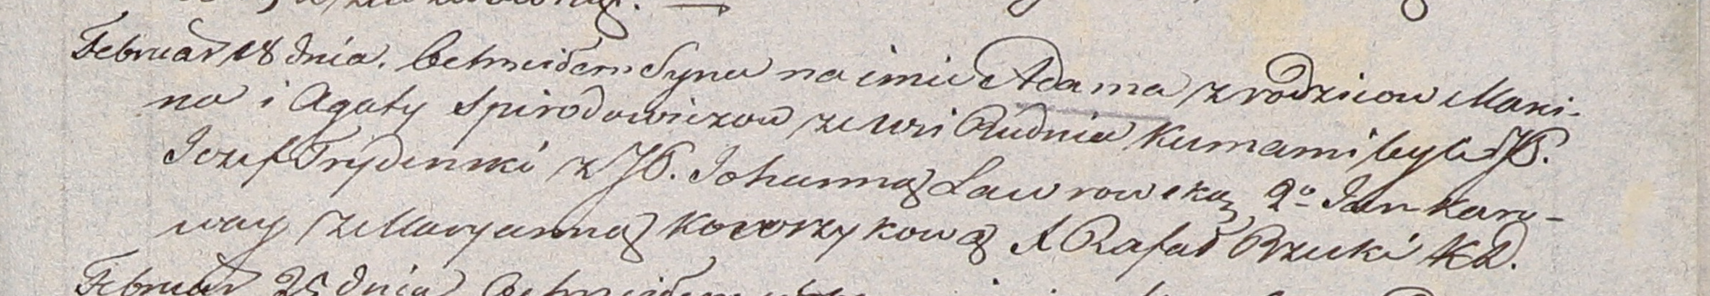 Februar 18 dnia. Ochrzciłem Syna na imie Adama z rodzicow Mari-
na i Agaty Spirodowiczow ze wsi Rudnia Kumami byli JP.
Jozef Trydenski z JP. Johanną Lawrowską 2o Jan Karu-
way z Maryanną Kororzykową X Rafał Rzucki KD.
Februar 25 dnia Ochrzciłem